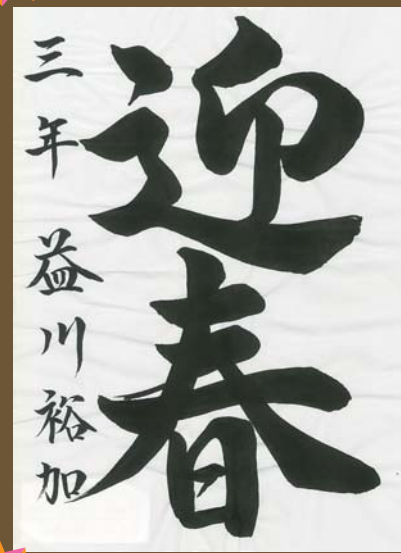 迎春
三年 益川裕加